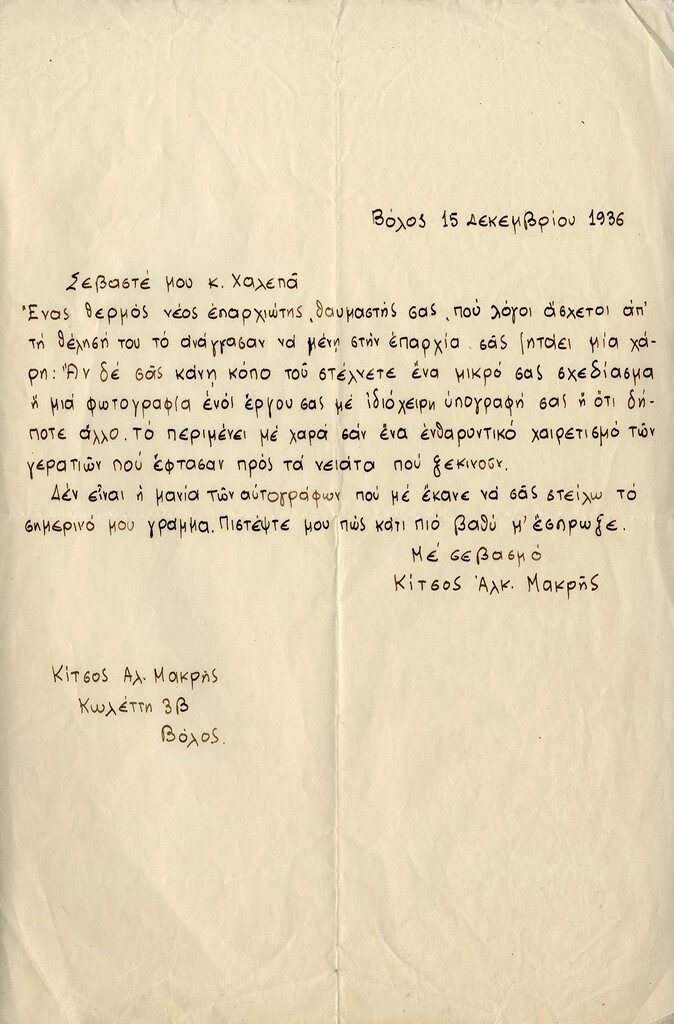 Βόλος 15 Δεκεμβρίου 1936
Σεβαστέ μου κ. Χαλεπᾶ
Ἕνας θερμός νέος ἐπαρχιώτης, θαυμαστής σας, πού λόγοι ἄσχετοι ἀπ'
τή θέλησή του τό ἀνάγγασαν νά μένῃ στήν ἐπαρχία σᾶς ζητάει μία χά-
ρη: Ἄν δέ σᾶς κάνη κόπο τοῦ στέλνετε ἕνα μικρό σας σχεδίασμα
ἤ μιά φωτογραφία ἑνός ἔργου σας μέ ἰδιόχειρη ὑπογραφή σας ἤ ὅτι δή-
ποτε ἄλλο. Τό περιμένει μέ χαρά σάν ἕνα ἐνθαρυντικό χαιρετισμό τῶν
γερατιῶν πού ἔφτασαν πρός τά νειάτα πού ξεκινοῦν.
Δέν εἶναι ἡ μανία τῶν αὐτογράφων πού μέ ἔκανε νά σᾶς στείλω τό
σημερινό μου γράμμα. Πιστέψτε μου πώς κάτι πιό βαθύ μ' ἔσπρωξε.
Μέ σεβασμό
Κίτσος Ἀλκ. Μακρῆς
Κίτσος Αλ. Μακρῆς
Κωλέττη 3Β
Βόλος.